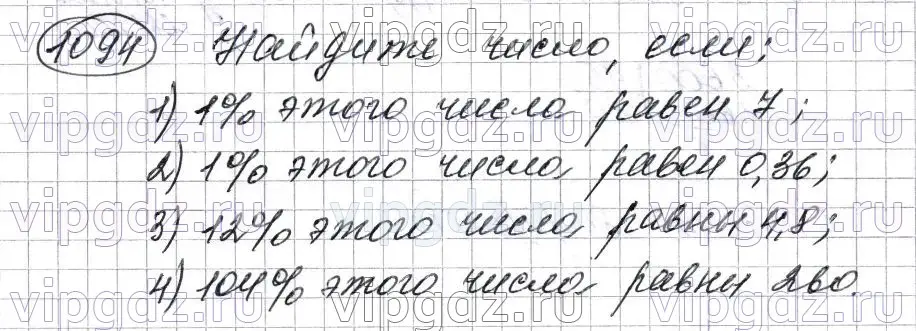 1094 Найдите число, если:
1) 1% этого числа равен 7;
2) 1% этого числа равен 0,36;
3) 12% этого числа равны 4,8;
4) 104% этого числа равны 260.
vipgdz.ru vipgdz.ru vipgdz.ru
vipgdz.ru vipgdz.ru vipgdz.ru
vipgdz.ru vipgdz.ru vipgdz.ru
vipgdz.ru vipgdz.ru vipgdz.ru
vipgdz.ru vipgdz.ru vipgdz.ru